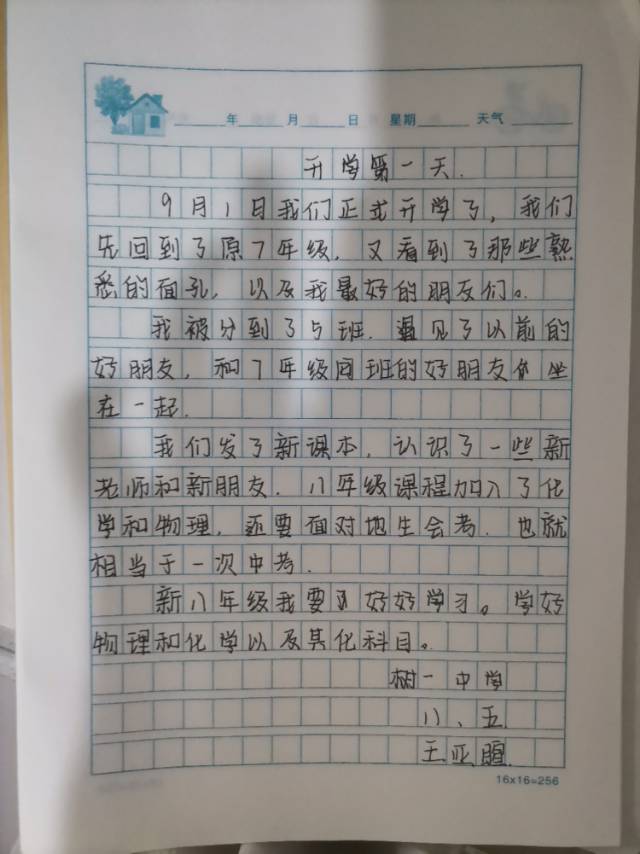 年 月 日 星期 天气
开学第一天.
9月1日我们正式开学了，我们
先回到了原7年级，又看到了那些熟
悉的面孔，以及我最好的朋友们。
我被分到了5班.遇见了以前的
好朋友，和7年级同班的好朋友坐
在一起.
我们发了新课本，认识了一些新
老师和新朋友.八年级课程加入了化
学和物理，还要面对地生会考.也就
相当于一次中考.
新八年级我要好好学习。学好
物理和化学以及其化科目。
树一中学
八、五
王亚
16x16=256